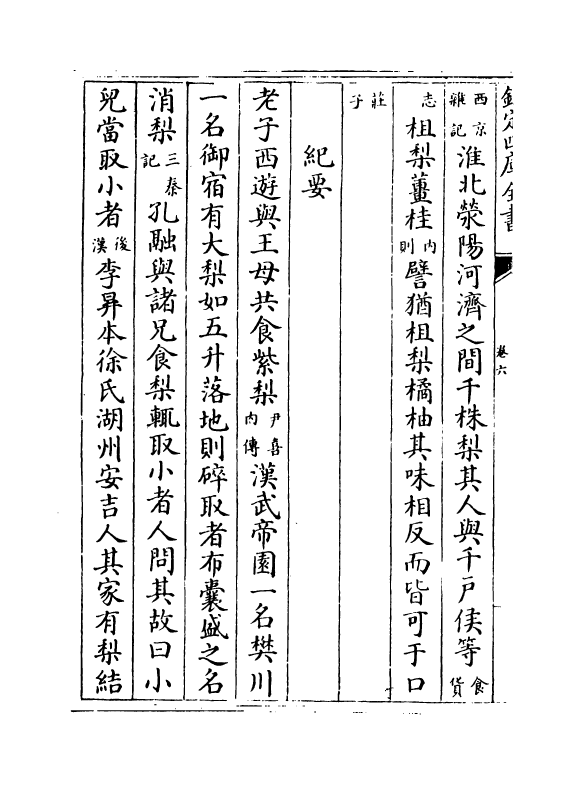 欽定四庫全書
卷六
西京雜記淮北滎陽河濟之間千株梨其人與千戶侯等食貨
志柤梨薑桂內則譬猶柤梨橘柚其味相反而皆可于口
莊子
紀要
老子西遊與王母共食紫梨尹喜內傳漢武帝園一名樊川
一名御宿有大梨如五升落地則碎取者布囊盛之名
消梨三秦記孔融與諸兄食梨輒取小者人問其故曰小
兒當取小者後漢李昇本徐氏湖州安吉人其家有梨結